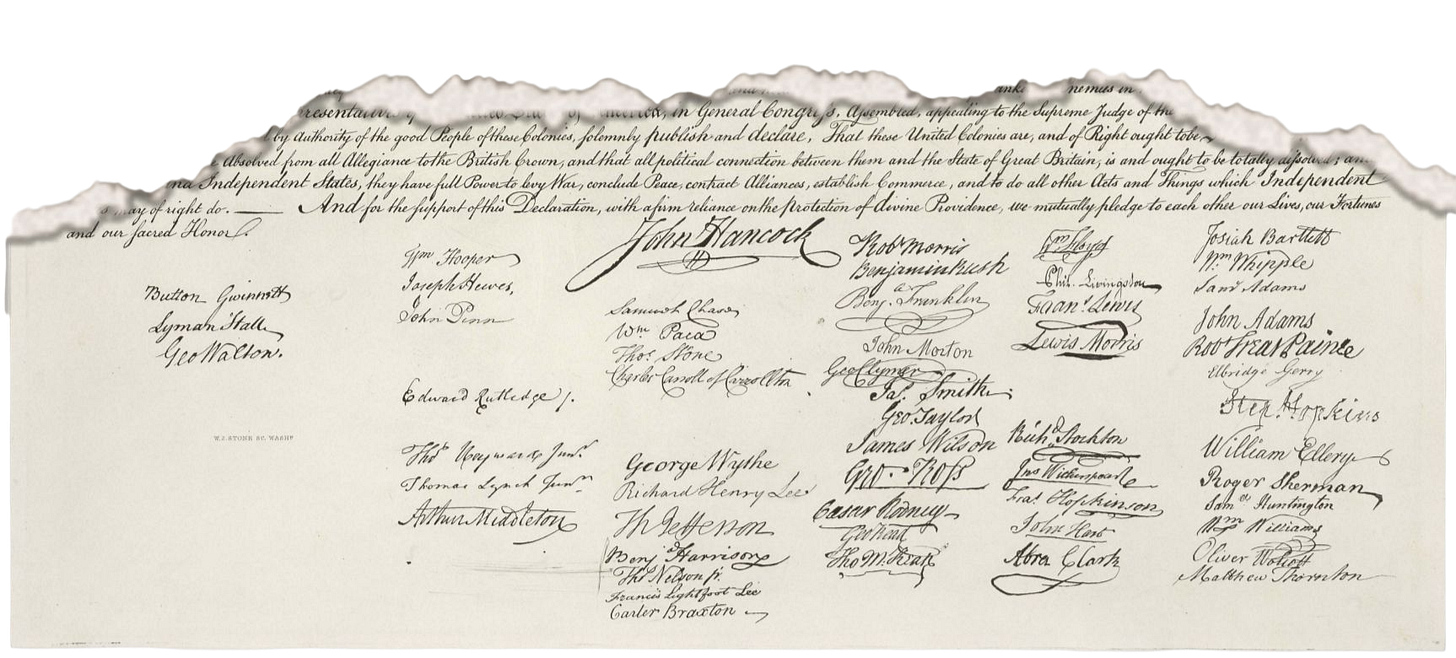 nemies in
resentati
in General Congre s, Assembled, appealing to the Supreme Judge of the
by Authority of the good People of these Colonies, solemnly publish and declare, That these United Colonies are, and of Right ought to be
Absolved from all Allegiance to the British Crown, and that all political connection between them and the State of Great Britain, is and ought to be totally dissolved; an
Independent States, they have full Power to levy War, conclude Peace, contract Alliances, establish Commerce, and to do all other Acts and Things which Independent
may of right do. — And for the support of this Declaration, with a firm reliance on the protection of divine Providence, we mutually pledge to each other our Lives, our Fortunes
and our sacred Honor.
Button Gwinnett
Lyman Hall
Geo Walton.
W.J. STONE SC. WASHN
Wm Hooper
Joseph Hewes,
John Penn
Edward Rutledge /.
Thos Heyward Junr.
Thomas Lynch Junr.
Arthur Middleton
John Hancock
Samuel Chase
Wm. Paca
Thos. Stone
Charles Carroll of Carrollton
George Wythe
Richard Henry Lee
Th Jefferson
Benja Harrison
Thos Nelson jr.
Francis Lightfoot Lee
Carter Braxton
Robt Morris
Benjamin Rush
Benja. Franklin
John Morton
Geo Clymer
Jas. Smith.
Geo. Taylor
James Wilson
Geo. Ross
Caesar Rodney
Geo Read
Tho M:Kean
Wm Floyd
Phil. Livingston
Frans. Lewis
Lewis Morris
Richd. Stockton
Jno Witherspoon
Fras. Hopkinson
John Hart
Abra Clark
Josiah Bartlett
Wm. Whipple
Saml Adams
John Adams
Robt Treat Paine
Elbridge Gerry
Step. Hopkins
William Ellery
Roger Sherman
Saml Huntington
Wm Williams
Oliver Wolcott
Matthew Thornton